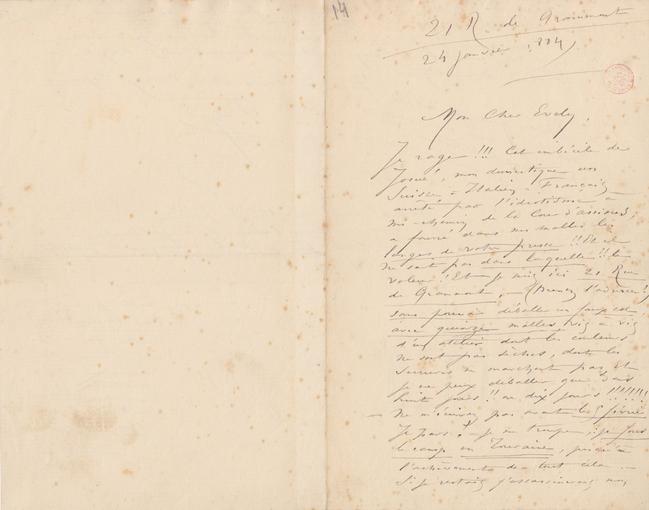 14
21 R. de Gramont
24 janvier 1884
Mon Cher Evely,
Je rage !!! Cet imbécile de
Josué, mon domestique
Suisse - Italien - Français
arrêté par l'idiotisme à
mi-chemin de la Cour d'assises,
a fourré dans mes malles les
langes de votre presse !! Et il
ne sait pas dans laquelle !! le
voleur ! Et je suis ici 21 Rue
de Gramont, - (Prenez l'adresse !)
sans pouvoir déballer un faux col,
avec quinze malles vis à vis
d'un atelier dont les couleurs
ne sont pas sèches, dont les
serrures ne marchent pas, Et
je ne peux déballer que dans
huit jours !! ou dix jours !!!!!!
Ne m'écrivez pas avant le 5 février
Je pars ! - je me trompe, : je fous
le camp en Touraine, jusqu'à
l'achèvement de tout cela. -
Si je restais j'assassinerais